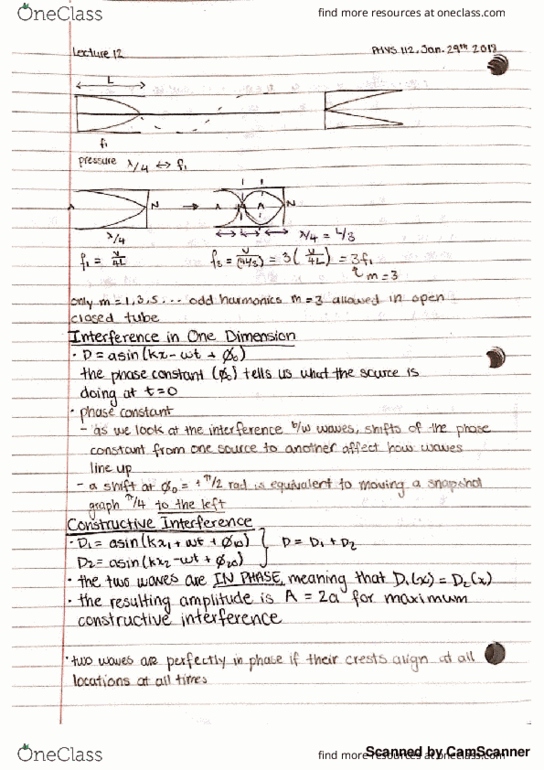 OneClass
find more resources at oneclass.com
Lecture 12
PHYS 112, Jan. 29th 2018
L
f1
pressure λ/4 ↔ f1
A N → A A N
λ/4
λ/4 = L/3
f1 = v/4L
= 3(v/4L) = 3f1
m = 3
only m = 1, 3, 5 ... odd harmonics m = 3 allowed in open
closed tube
Interference in One Dimension
• D = asin(kx - wt + ϕ0)
the phase constant (ϕ0) tells us what the source is
doing at t=0
• phase constant
- as we look at the interference b/w waves, shifts of the phase
constant from one source to another affect how waves
line up
- a shift of ϕ0 = + π/2 rad is equivalent to moving a snapshot
graph π/4 to the left
Constructive Interference
• D1 = asin(kx1 + wt + ϕ10) } D = D1 + D2
D2 = asin(kx2 - wt + ϕ20)
• the two waves are IN PHASE, meaning that D1(x) = D2(x)
• the resulting amplitude is A = 2a for maximum
constructive interference
• two waves are perfectly in phase if their crests align at all
locations at all times
OneClass
find more resources at oneclass.com
Scanned by CamScanner